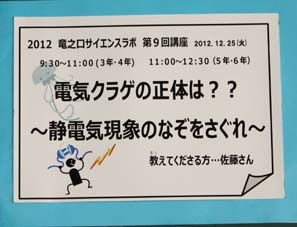 2012 竜之口サイエンスラボ 第9回講座 2012.12.25(火)
9:30～11:00(3年・4年) 11:00～12:30(5年・6年)
電気クラゲの正体は？？
～静電気現象のなぞをさぐれ～
教えてくださる方…佐藤さん